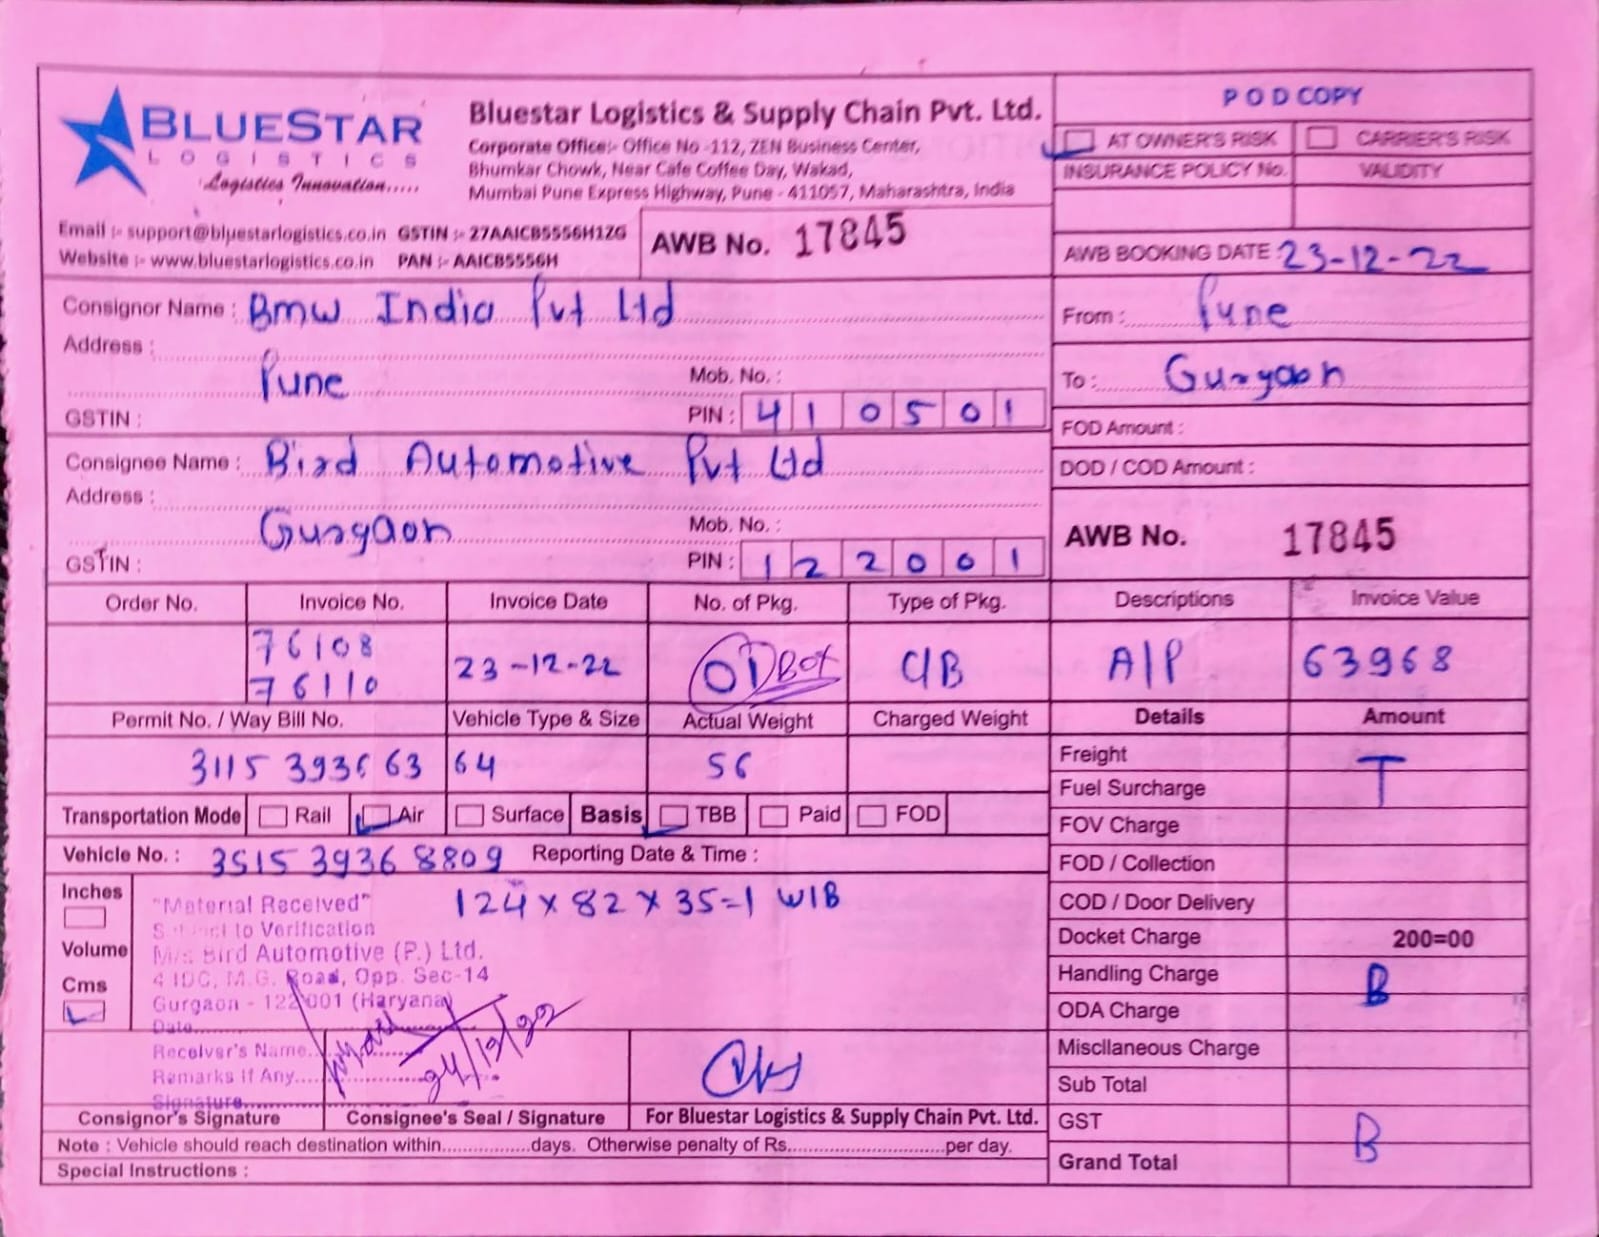 BLUESTAR
LOGISTICS
Logistics Innovation.....
Bluestar Logistics & Supply Chain Pvt. Ltd.
Corporate Office:- Office No -112, ZEN Business Center,
Bhumkar Chowk, Near Cafe Coffee Day, Wakad,
Mumbai Pune Express Highway, Pune - 411057, Maharashtra, India
POD COPY
AT OWNER'S RISK CARRIER'S RISK
INSURANCE POLICY No. VALIDITY
Email :- support@bluestarlogistics.co.in GSTIN :- 27AAICB5556H1ZG
Website :- www.bluestarlogistics.co.in PAN :- AAICB5556H
AWB No. 17845
AWB BOOKING DATE : 23-12-22
Consignor Name : Bmw India Pvt Ltd
Address :
Pune
Mob. No. :
GSTIN : PIN : 410501
From : Pune
To : Gurgaon
FOD Amount :
DOD / COD Amount :
Consignee Name : Bird Automotive Pvt Ltd
Address :
Gurgaon
Mob. No. :
GSTIN : PIN : 122001
AWB No. 17845
Order No. Invoice No. Invoice Date No. of Pkg. Type of Pkg. Descriptions Invoice Value
76108
76110
23-12-22 01 Box C/B A/P 63968
Permit No. / Way Bill No. Vehicle Type & Size Actual Weight Charged Weight Details Amount
3115 3936 63 64 56
Transportation Mode Rail Air Surface Basis TBB Paid FOD
Vehicle No. : 3515 3936 8809 Reporting Date & Time :
124 x 82 x 35=1 W/B
Inches
Volume
Cms
"Material Received"
Subject to Verification
M/s Bird Automotive (P.) Ltd.
4 IDC, M.G. Road, Opp. Sec-14
Gurgaon - 122001 (Haryana)
Date..........
Receiver's Name..........
Remarks If Any..........
Signature..........
24/12/22
Freight T
Fuel Surcharge
FOV Charge
FOD / Collection
COD / Door Delivery
Docket Charge 200=00
Handling Charge B
ODA Charge
Miscllaneous Charge
Sub Total
GST B
Grand Total
Consignor's Signature Consignee's Seal / Signature For Bluestar Logistics & Supply Chain Pvt. Ltd.
Note : Vehicle should reach destination within.................days. Otherwise penalty of Rs..............................per day.
Special Instructions :